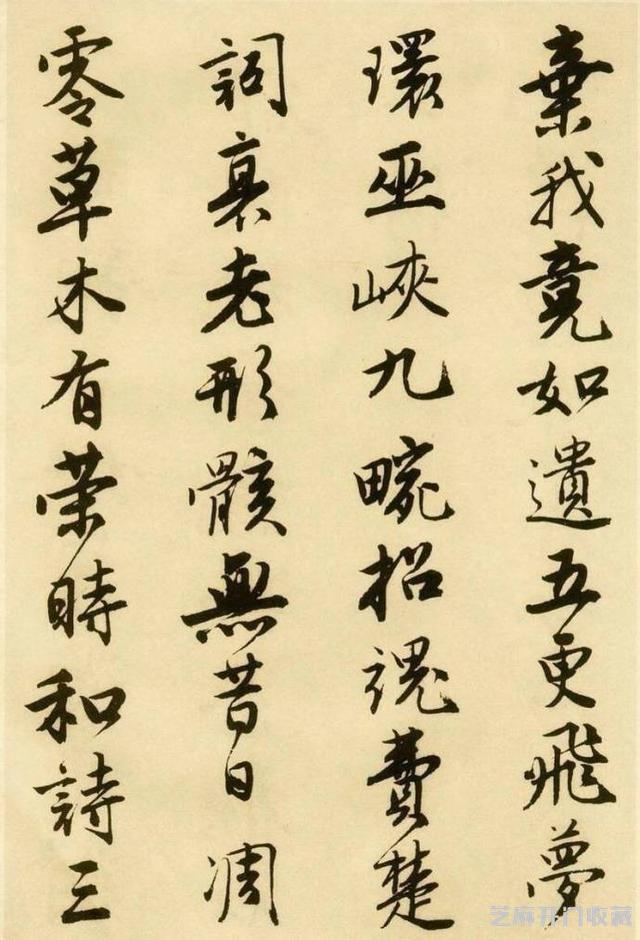 棄我竟如遺五更飛夢
環巫峽九畹招魂費楚
詞衰老形骸無昔日凋
零草木有榮時和詩三
芝麻开门收藏